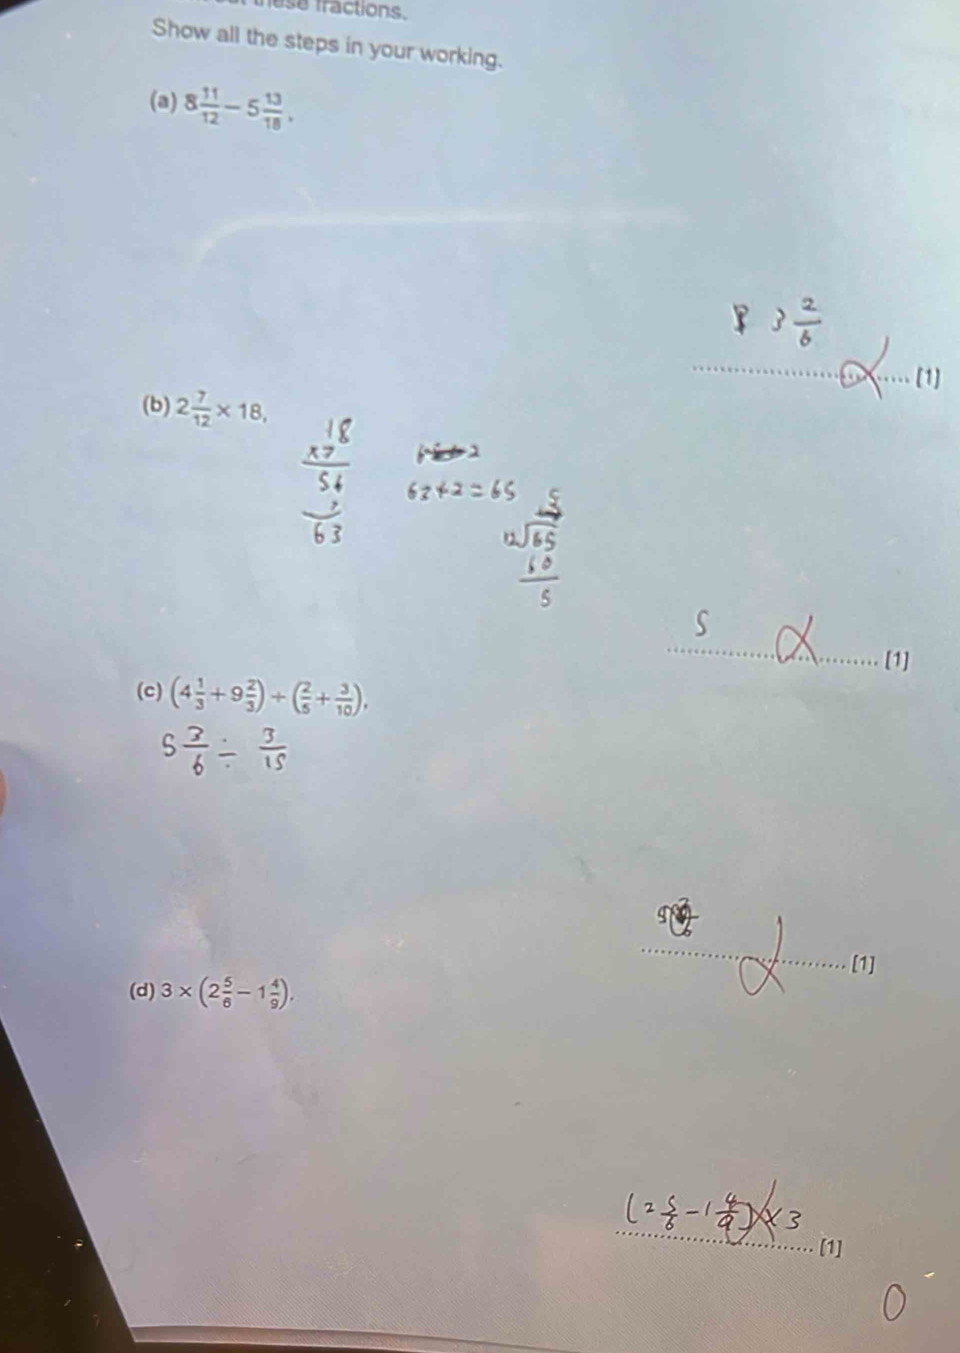 these fractions.
Show all the steps in your working.
(a) 8 11/12 − 5 13/18,
3 2/6
[1]
(b) 2 7/12 × 18,
18
×7
56
7
63
2
63+2=65
5
12√65
60
5
5
[1]
(c) (4 1/3 + 9 2/3) ÷ (2/5 + 3/10),
5 3/6 ÷ 3/15
[1]
(d) 3 × (2 5/6 − 1 4/9).
(2 5/6 − 1 4/9) × 3
[1]
0